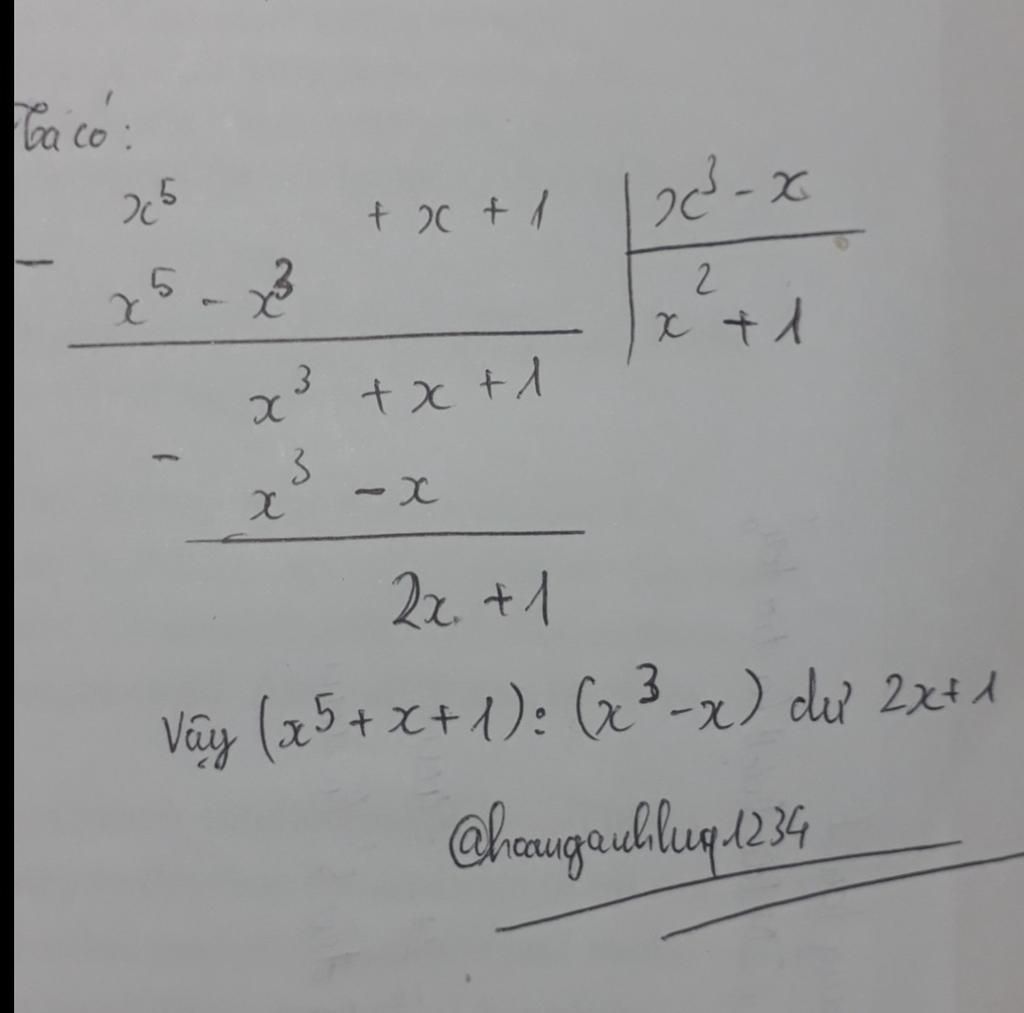 Ta có:
x⁵ + x + 1 | x³ - x
- x⁵ - x³ | x² + 1
x³ + x + 1
- x³ - x
2x + 1
Vậy (x⁵ + x + 1) : (x³ - x) dư 2x + 1
@hoanganhluq1234